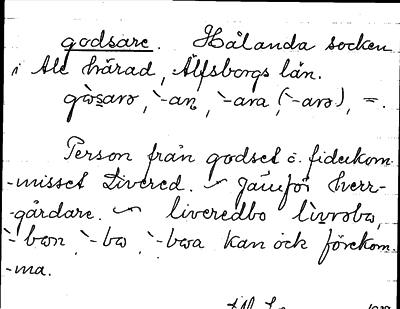 godsare. Hålanda socken
i Ale härad, Älfsborgs län.
gωsarə, `-an, `-ara (`-arə), =.
Person från godset o. fideikom-
-misset Livered. ~ Jämför herr-
-gårdare. ~ liveredbo
`-bωn, `-bω, `-bωa kan ock förekom-
-ma.